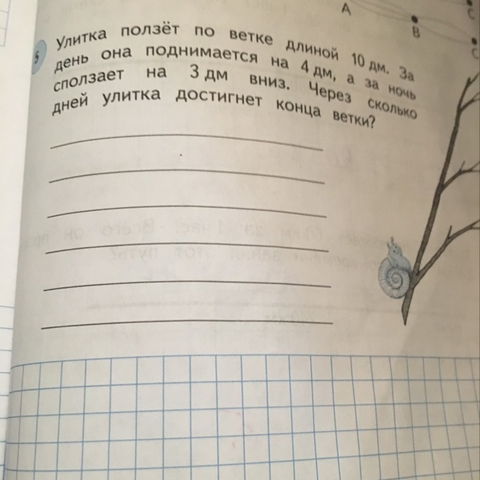 A
B
C
C
6 Улитка ползёт по ветке длиной 10 дм. За
день она поднимается на 4 дм, а за ночь
сползает на 3 дм вниз. Через сколько
дней улитка достигнет конца ветки?